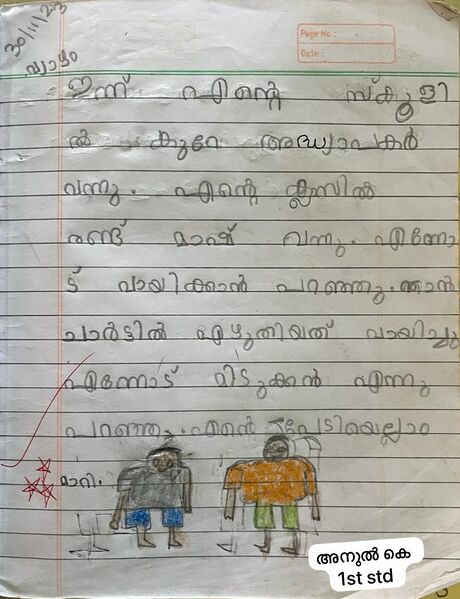 30/11/23
വ്യാഴം
Page No:
Date:
ഇന്ന് എന്റെ സ്കൂളി
ൽ കുറേ അദ്ധ്യാപകർ
വന്നു. എന്റെ ക്ലാസിൽ
രണ്ട് മാഷ് വന്നു. എന്നോ
ട് വായിക്കാൻ പറഞ്ഞു. ഞാൻ
ചാർട്ടിൽ എഴുതിയത് വായിച്ചു
എന്നോട് മിടുക്കൻ എന്നു
പറഞ്ഞു. എന്റെ പേടിയെല്ലാം
മാറി.
അനുൽ കെ
1st std